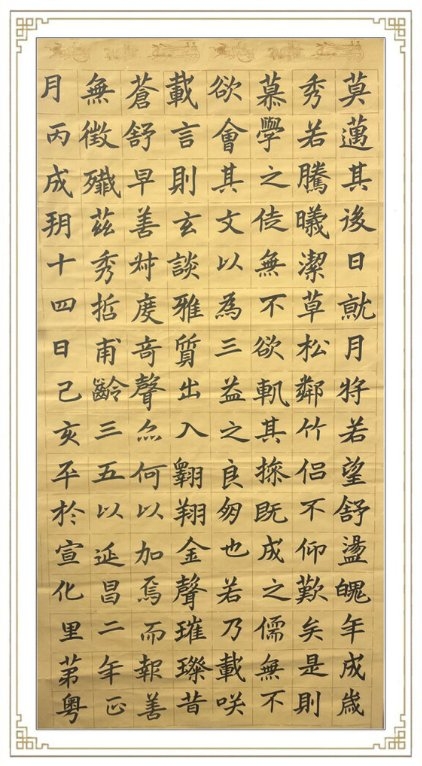 莫邁其後日就月將若望舒盪魄年成歲
秀若騰曦潔草松鄰竹侶不仰歎矣是則
慕學之徒無不欲軌其操既成之儒無不
欲會其文以為三益之良朋也若乃載咲
載言則玄談雅質出入翱翔金聲璀璨昔
蒼舒早善叔度奇聲亦何以加焉而報善
無徵殲茲秀哲甫齡三五以延昌二年正
月丙戌朔十四日己亥卒於宣化里第粵